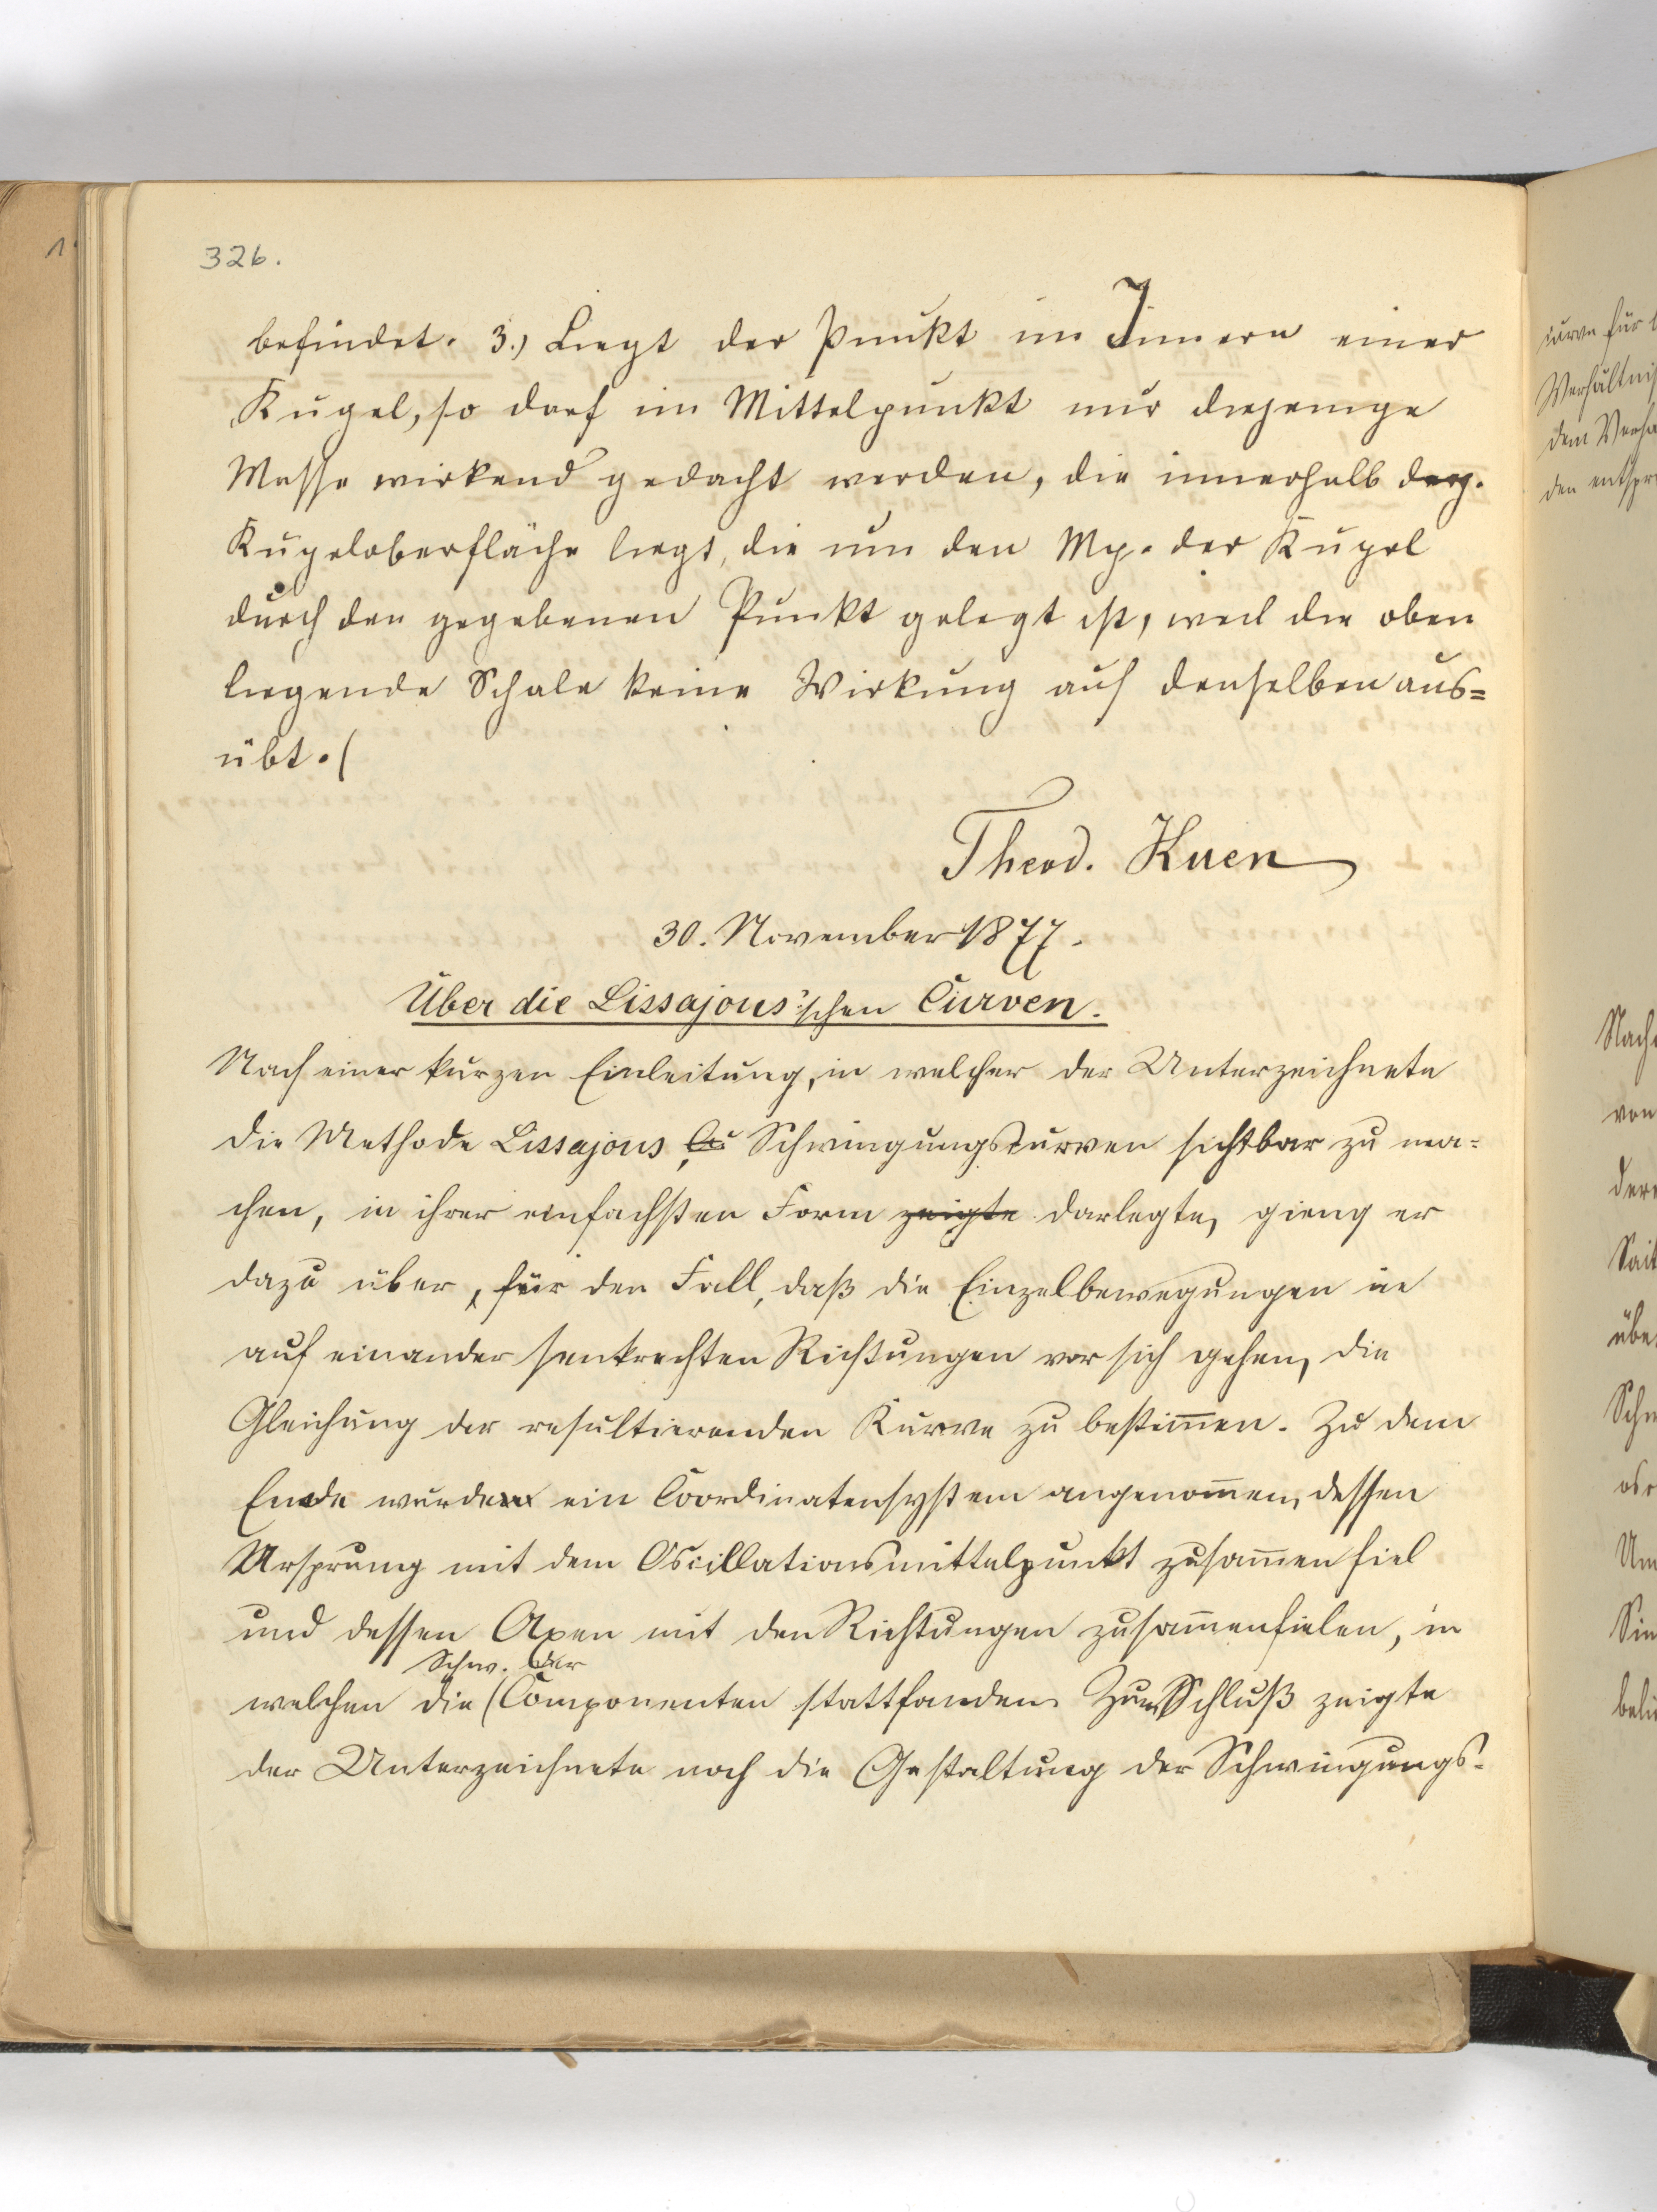 326.
befindet. 3.) Liegt der Punkt im Innern einer
Kugel, so darf im Mittelpunkt nur diejenige
Masse wirkend gedacht werden, die innerhalb derj.
Kugeloberfläche liegt, die um den Mp. der Kugel
durch den gegebenen Punkt gelegt ist, weil die oben
liegende Schale keine Wirkung auf denselben aus=
übt.
Theod. Kuen
30. November 1877.
Über die Lissajous'schen Curven.
Nach einer kurzen Einleitung, in welcher der Unterzeichnete
die Methode Lissajous Schwingungscurven sichtbar zu ma-
chen, in ihrer einfachsten Form zeigte darlegte, gieng er
dazu über, für den Fall, daß die Einzelbewegungen in
auf einander senkrechten Richtungen vor sich gehen, die
Gleichung der resultierenden Kurve zu bestim̄en. Zu dem
Ende wurde ein Coordinatensystem angenom̄en, dessen
Ursprung mit dem Oscillationsmittelpunkt zusam̄en fiel
und dessen Axen mit den Richtungen zusam̄enfielen, in
Schw. der
welchen die (Componenten stattfanden. Zum Schluß zeigte
der Unterzeichnete noch die Gestaltung der Schwingungs-
curve für
Verhältnis
dem
den
von